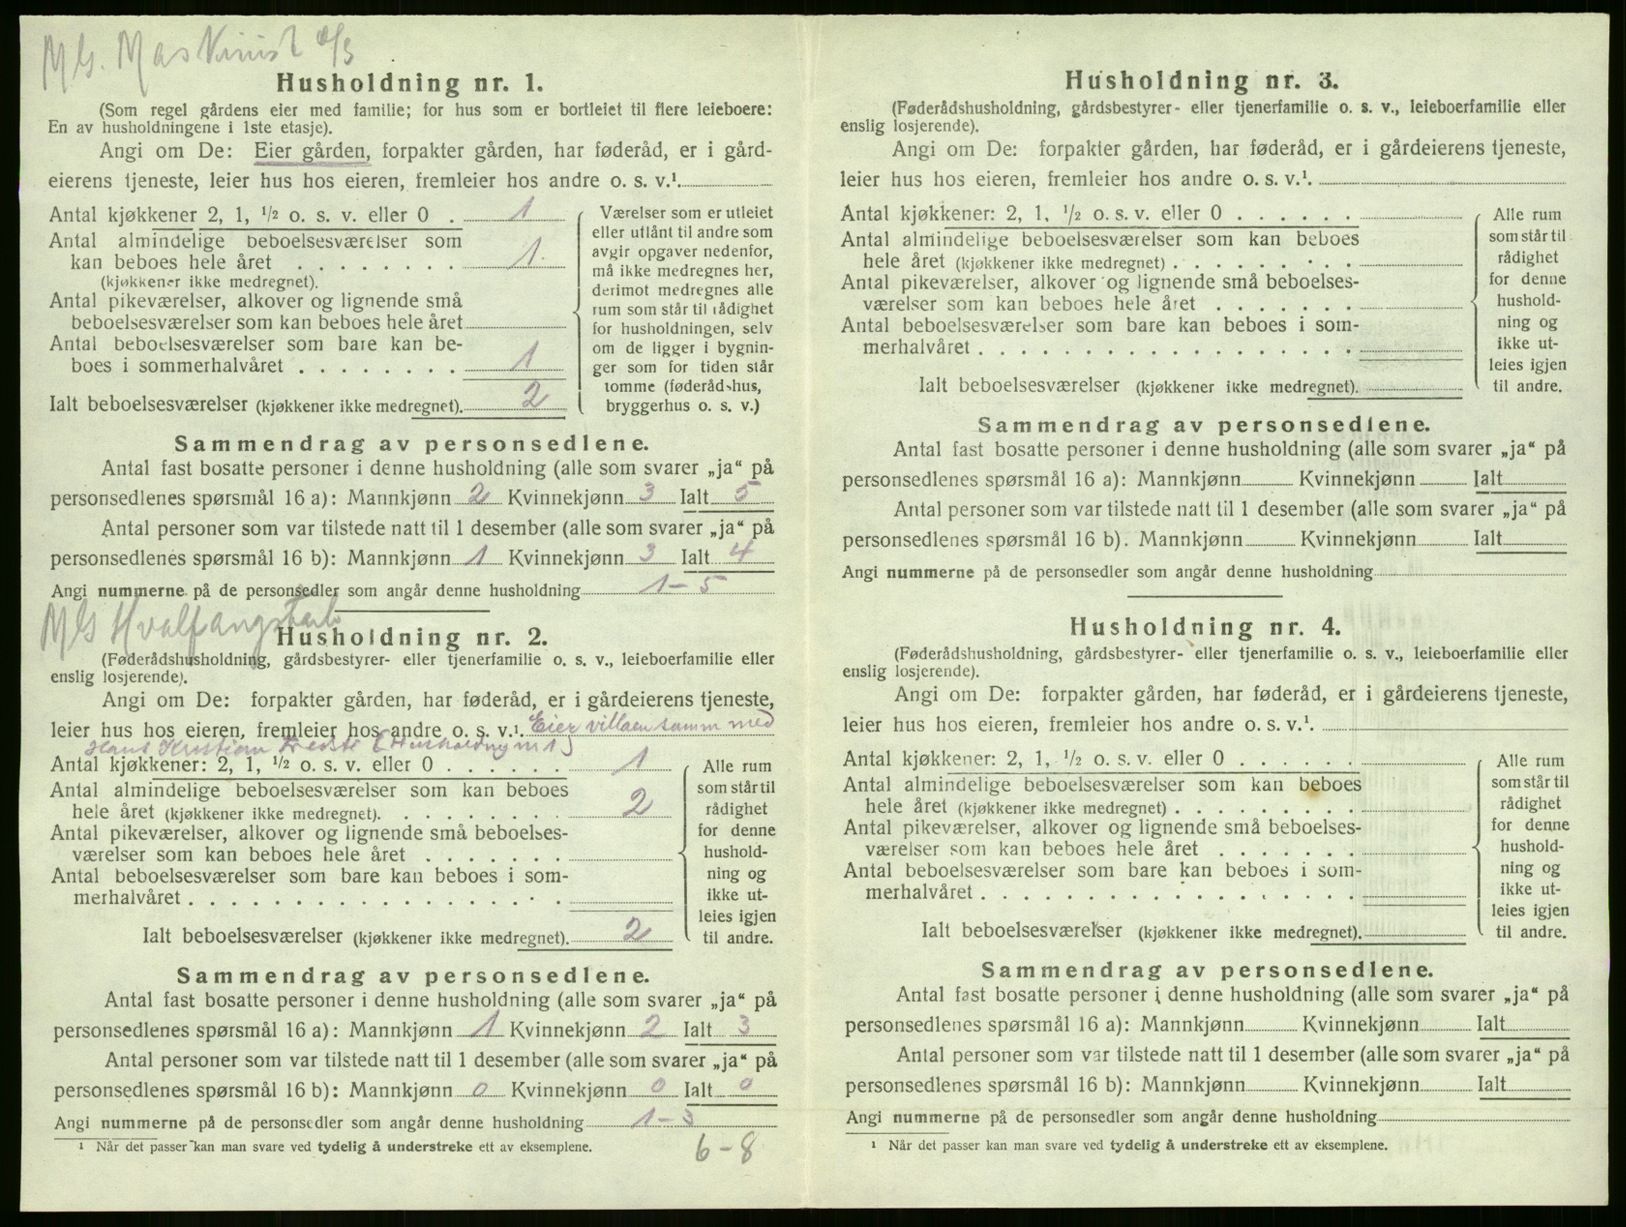 MG. Maskinist a/s
Husholdning nr. 1.
(Som regel gårdens eier med familie; for hus som er bortleiet til flere leieboere:
En av husholdningene i 1ste etasje).
Angi om De: Eier gården, forpakter gården, har føderåd, er i gård-
eierens tjeneste, leier hus hos eieren, fremleier hos andre o. s. v.¹.
Antal kjøkkener 2, 1, ½ o. s. v. eller 0 . 1
Antal almindelige beboelsesværelser som
kan beboes hele året . . . . . . . 1
(kjøkkener ikke medregnet).
Antal pikeværelser, alkover og lignende små
beboelsesværelser som kan beboes hele året
Antal beboelsesværelser som bare kan be-
boes i sommerhalvåret . . . . . . . 1
Ialt beboelsesværelser (kjøkkener ikke medregnet). 2
Værelser som er utleiet
eller utlånt til andre som
avgir opgaver nedenfor,
må ikke medregnes her,
derimot medregnes alle
rum som står til rådighet
for husholdningen, selv
om de ligger i bygnin-
ger som for tiden står
tomme (føderådshus,
bryggerhus o. s. v.)
Sammendrag av personsedlene.
Antal fast bosatte personer i denne husholdning (alle som svarer „ja“ på
personsedlenes spørsmål 16 a): Mannkjønn 2 Kvinnekjønn 3 Ialt 5
Antal personer som var tilstede natt til 1 desember (alle som svarer „ja“ på
personsedlenes spørsmål 16 b): Mannkjønn 1 Kvinnekjønn 3 Ialt 4
Angi nummerne på de personsedler som angår denne husholdning 1-5
MG Hvalfangstarb
Husholdning nr. 2.
(Føderådshusholdning, gårdsbestyrer- eller tjenerfamilie o. s. v., leieboerfamilie eller
enslig losjerende).
Angi om De: forpakter gården, har føderåd, er i gårdeierens tjeneste,
leier hus hos eieren, fremleier hos andre o. s. v.¹. Eier villaen samm med
Hans Kristian (Husholdning nr 1)
Antal kjøkkener: 2, 1, ½ o. s. v. eller 0 . . . . . . 1
Antal almindelige beboelsesværelser som kan beboes
hele året (kjøkkener ikke medregnet). . . . . . . . . 2
Antal pikeværelser, alkover og lignende små beboelses-
værelser som kan beboes hele året . . . . . . .
Antal beboelsesværelser som bare kan beboes i som-
merhalvåret . . . . . . . . . . . . . . . . . .
Ialt beboelsesværelser (kjøkkener ikke medregnet). 2
Alle rum
som står til
rådighet
for denne
hushold-
ning og
ikke ut-
leies igjen
til andre.
Sammendrag av personsedlene.
Antal fast bosatte personer i denne husholdning (alle som svarer „ja“ på
personsedlenes spørsmål 16 a): Mannkjønn 1 Kvinnekjønn 2 Ialt 3
Antal personer som var tilstede natt til 1 desember (alle som svarer „ja“ på
personsedlenes spørsmål 16 b): Mannkjønn 0 Kvinnekjønn 0 Ialt 0
Angi nummerne på de personsedler som angår denne husholdning 1-3
¹ Når det passer kan man svare ved tydelig å understreke ett av eksemplene.
6-8
Husholdning nr. 3.
(Føderådshusholdning, gårdsbestyrer- eller tjenerfamilie o. s. v., leieboerfamilie eller
enslig losjerende).
Angi om De: forpakter gården, har føderåd, er i gårdeierens tjeneste,
leier hus hos eieren, fremleier hos andre o. s. v.¹.
Antal kjøkkener: 2, 1, ½ o. s. v. eller 0 . . . . . .
Antal almindelige beboelsesværelser som kan beboes
hele året (kjøkkener ikke medregnet) . . . . . . . . .
Antal pikeværelser, alkover og lignende små beboelses-
værelser som kan beboes hele året . . . . . . .
Antal beboelsesværelser som bare kan beboes i som-
merhalvåret . . . . . . . . . . . . . . . . . .
Ialt beboelsesværelser (kjøkkener ikke medregnet).
Alle rum
som står til
rådighet
for denne
hushold-
ning og
ikke ut-
leies igjen
til andre.
Sammendrag av personsedlene.
Antal fast bosatte personer i denne husholdning (alle som svarer „ja“ på
personsedlenes spørsmål 16 a): Mannkjønn Kvinnekjønn Ialt
Antal personer som var tilstede natt til 1 desember (alle som svarer „ja“ på
personsedlenes spørsmål 16 b). Mannkjønn Kvinnekjønn Ialt
Angi nummerne på de personsedler som angår denne husholdning
Husholdning nr. 4.
(Føderådshusholdning, gårdsbestyrer- eller tjenerfamilie o. s. v., leieboerfamilie eller
enslig losjerende).
Angi om De: forpakter gården, har føderåd, er i gårdeierens tjeneste,
leier hus hos eieren, fremleier hos andre o. s. v.¹.
Antal kjøkkener: 2, 1, ½ o. s. v. eller 0 . . . . . .
Antal almindelige beboelsesværelser som kan beboes
hele året (kjøkkener ikke medregnet) . . . . . . . . .
Antal pikeværelser, alkover og lignende små beboelses-
værelser som kan beboes hele året . . . . . . .
Antal beboelsesværelser som bare kan beboes i som-
merhalvåret . . . . . . . . . . . . . . . . . .
Ialt beboelsesværelser (kjøkkener ikke medregnet).
Alle rum
som står til
rådighet
for denne
hushold-
ning og
ikke ut-
leies igjen
til andre.
Sammendrag av personsedlene.
Antal fast bosatte personer i denne husholdning (alle som svarer „ja“ på
personsedlenes spørsmål 16 a): Mannkjønn Kvinnekjønn Ialt
Antal personer som var tilstede natt til 1 desember (alle som svarer „ja“ på
personsedlenes spørsmål 16 b): Mannkjønn Kvinnekjønn Ialt
Angi nummerne på de personsedler som angår denne husholdning
¹ Når det passer kan man svare ved tydelig å understreke ett av eksemplene.